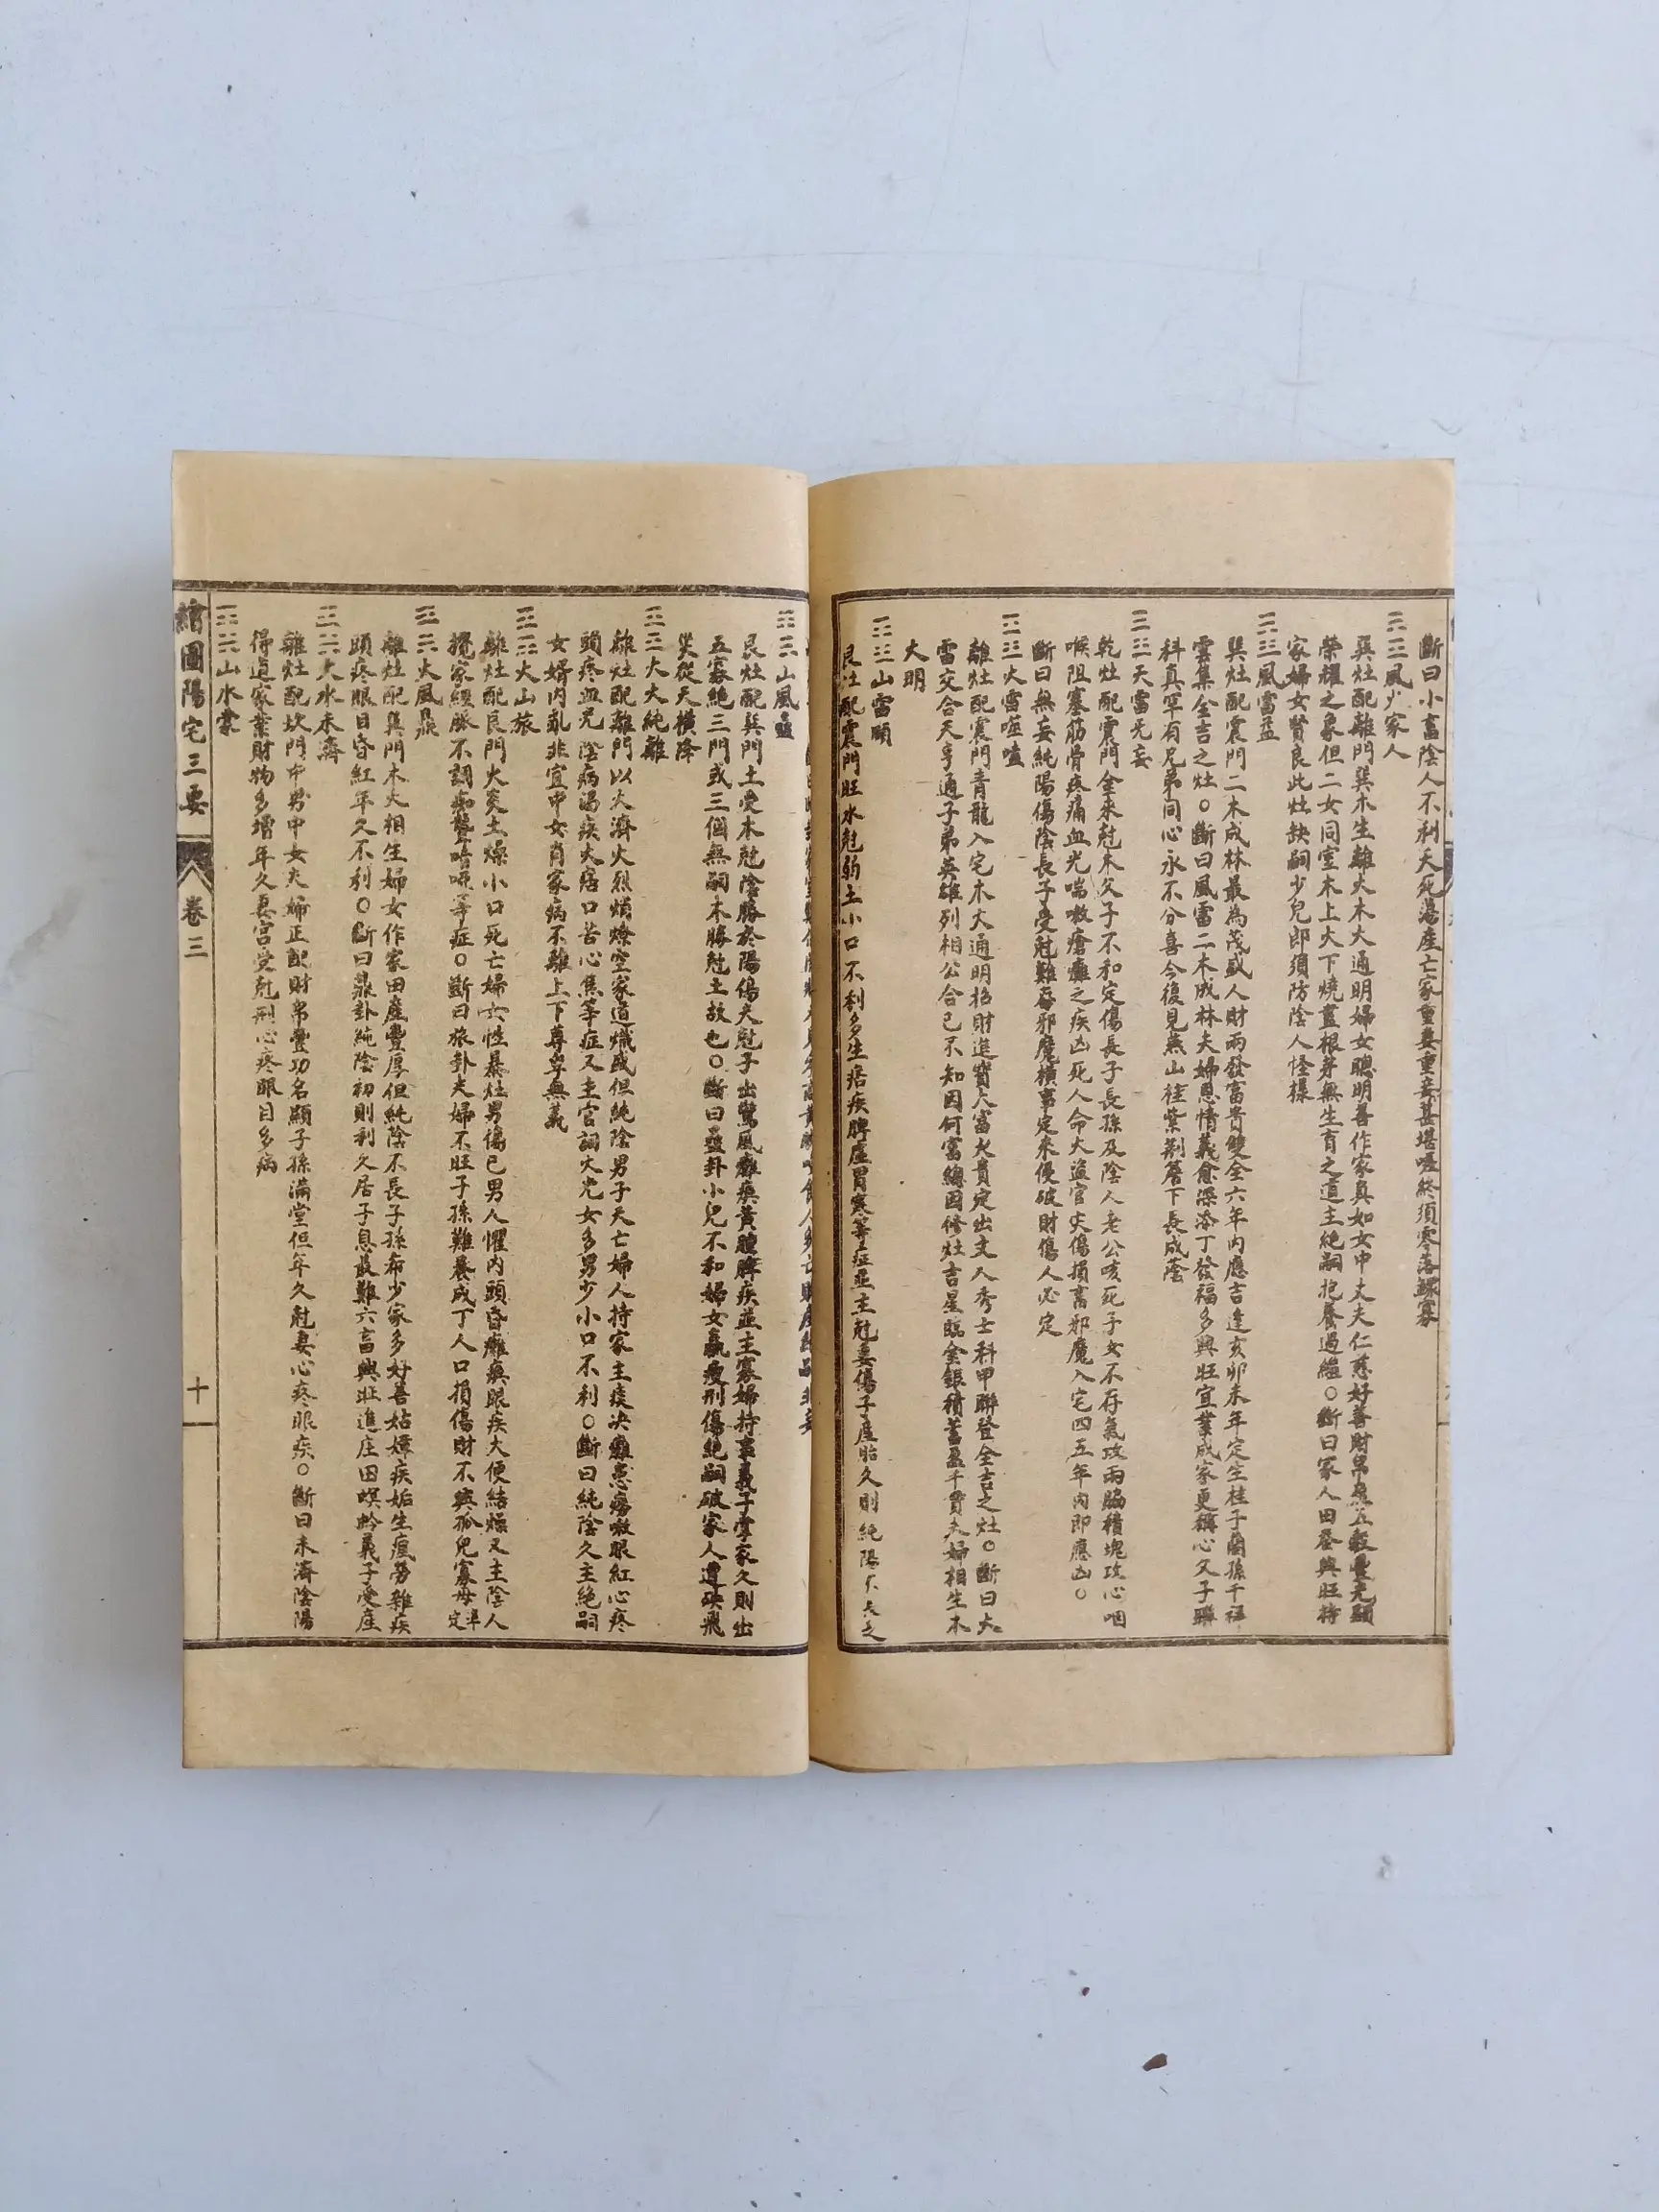 斷曰小畜陰人不利夭死蕩產亡家重妻重妾甚堪嗟終須零落鰥寡
風火家人
巽灶配離門巽木生離火木火通明婦女聰明善作家真如女中丈夫仁慈好善財帛盈五穀豐光顯
榮耀之象但二女同室木上火下燒盡根芽無生育之道主絕嗣抱養過繼○斷曰家人田蚕興旺持
家婦女賢良此灶缺嗣少兒郎須防陰人怪樣
風雷益
巽灶配震門二木成林最為茂盛人財兩發富貴雙全六年內應吉逢亥卯未年定生桂子蘭孫千祥
雲集全吉之灶○斷曰風雷二木成林夫婦恩情義愈深添丁發福多興旺宜業成家更稱心父子聯
科真罕有兄弟同心永不分喜今復見燕山桂紫荊蓍下長成蔭
天雷无妄
乾灶配震門金來尅木父子不和定傷長子長孫及陰人老公咳死子女不存氣攻兩脇積塊攻心咽
喉阻塞筋骨疼痛血光喘嗽瘡癱之疾凶死人命火盜官災傷損畜邪魔入宅四五年內即應凶○
斷曰無妄純陽傷陰長子受尅難存邪魔橫事定來侵破財傷人必定
火雷噬嗑
離灶配震門青龍入宅木火通明招財進寶大富大貴定出文人秀士科甲聯登全吉之灶○斷曰火
雷交合天亨通子弟英雄列相公合已不知因何富總因修灶吉星臨金銀積蓄盈千貫夫婦相生木
火明
山雷頤
艮灶配震門旺木尅弱土小口不利多生痞疾脾虛胃寒等症並主尅妻傷子產胎久則純陽不長乏
山風蠱
艮灶配巽門土受木尅陰勝於陽傷夫尅子出驚風癱瘓黃腫脾疾並主寡婦持事義子掌家久則出
五寡絕三門或三個無嗣木勝尅土故也○斷曰蠱卦小兒不和婦女氣瘦刑傷絕嗣破家人遭殃飛
災從天橫降
火火純離
離灶配離門以火濟火烈焰燎空家道熾盛但純陰男子夭亡婦人持家主痰決癱患癆嗽眼紅心疼
頭疼血光陰病渴疾火痞口苦心焦等症又主官詞火光女多男少小口不利○斷曰純陰久主絕嗣
女婿內亂非宜中女肖家病不離上下尊卑無義
火山旅
離灶配艮門火炎土燥小口死亡婦女性暴灶男傷已男人懼內頭昏癱瘓眼疾大便結燥又主陰人
攪家經脈不調痴聾喑啞等症○斷曰旅卦夫婦不旺子孫難養成丁人口損傷財不興孤兒寡母準定
火風鼎
離灶配巽門木火相生婦女作家田產豐厚但純陰不長子孫希少家多好善姑嫜疾妬生瘋勞雜疾
頭疼眼目昏紅年久不利○斷曰鼎卦純陰初則利久居子息最難六畜興旺進庄田螟蛉義子受産
火水未濟
離灶配坎門中男中女夫婦正配財帛豐功名顯子孫滿堂但年久尅妻心疼眼疾○斷曰未濟陰陽
得道家業財物多增年久妻宮受尅刑心疼眼目多病
山水蒙
繪圖陽宅三要
卷三
十